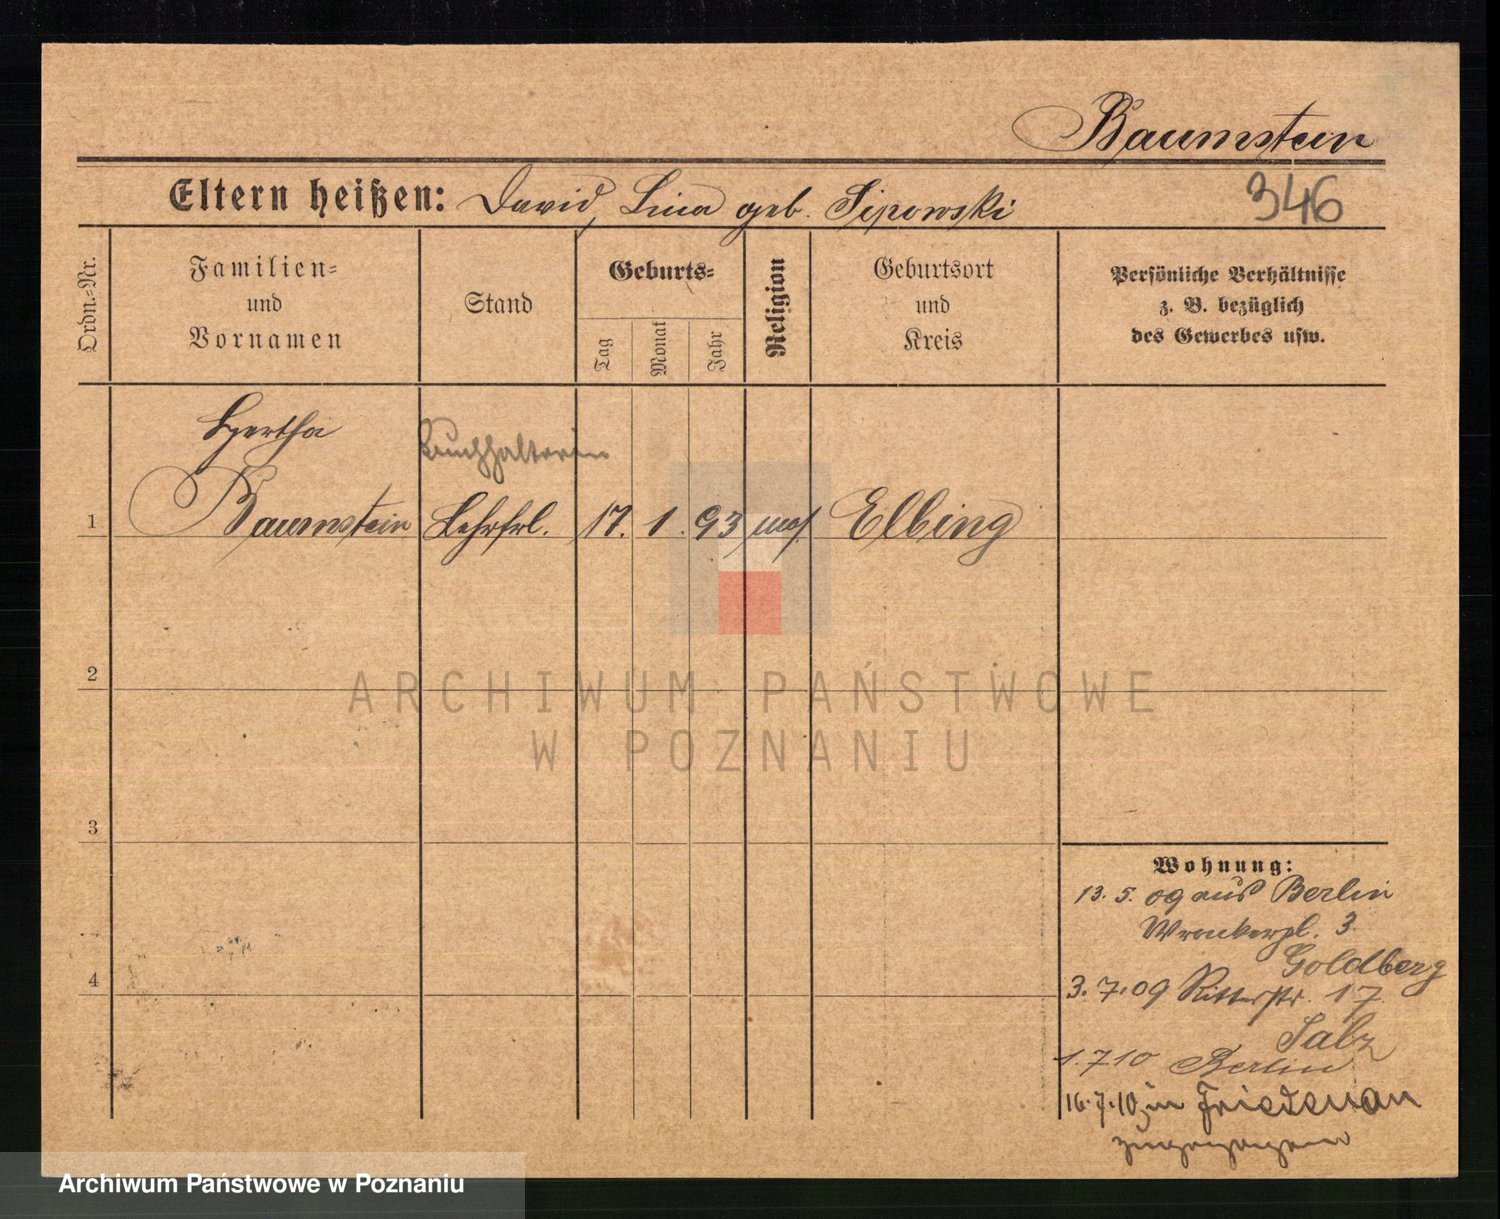 Baumstein
Eltern heißen: David, Lina geb. Lipowski
346
Ordn.-Nr.
Familien-
und
Vornamen
Stand
Geburts-
Tag
Monat
Jahr
Religion
Geburtsort
und
Kreis
Persönliche Verhältnisse
z. B. bezüglich
des Gewerbes usw.
Hertha
Buchhalterin
1 Baumstein Lehrfrl. 17. 1. 93 mos. Elbing
2
3
4
Wohnung:
13. 5. 09 aus Berlin
Wronkerpl. 3.
Goldberg
3. 7. 09 Ritterstr. 17
Salz
1. 7 10 Berlin
16. 7. 10 in Friedenau
zugezogen
ARCHIWUM PAŃSTWOWE
W POZNANIU
Archiwum Państwowe w Poznaniu